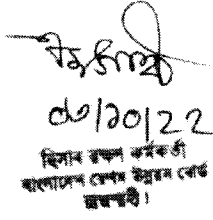 ০৩/১০/২২
হিসাব রক্ষণ কর্মকর্তা
বাংলাদেশ রেশম উন্নয়ন বোর্ড
রাজশাহী।